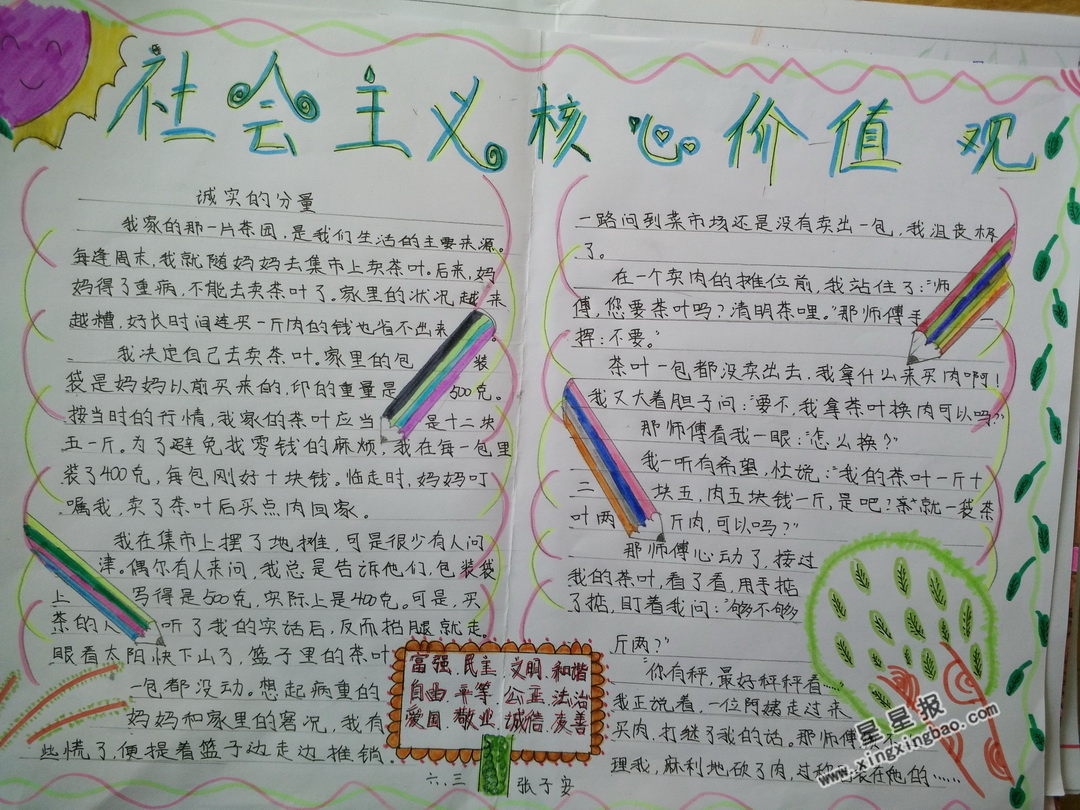 社会主义核心价值观
诚实的分量
我家的那一片茶园，是我们生活的主要来源。
每逢周末，我就随妈妈去集市上卖茶叶。后来，妈
妈得了重病，不能去卖茶叶了。家里的状况越来
越糟，好长时间连买一斤肉的钱也省不出来。
我决定自己去卖茶叶。家里的包装
袋是妈妈以前买来的，印的重量是500克。
按当时的行情，我家的茶叶应当是十二块
五一斤。为了避免找零钱的麻烦，我在每一包里
装了400克，每包刚好十块钱。临走时，妈妈叮
嘱我，卖了茶叶后买点肉回家。
我在集市上摆了地摊，可是很少有人问
津。偶尔有人来问，我总是告诉他们，包装袋
上写得是500克，实际上是400克。可是，买
茶的人听了我的实话后，反而抬腿就走。
眼看太阳快下山了，篮子里的茶叶
一包都没动。想起病重的
妈妈和家里的窘况，我有
些慌了，便提着篮子边走边推销。
一路问到菜市场还是没有卖出一包，我沮丧极
了。
在一个卖肉的摊位前，我站住了："师
傅，您要茶叶吗？清明茶哩。"那师傅手
挥：不要。"
茶叶一包都没卖出去，我拿什么来买肉啊！
我又大着胆子问："要不，我拿茶叶换肉可以吗？"
那师傅看我一眼："怎么换？"
我一听有希望，忙说："我的茶叶一斤十
二块五，肉五块钱一斤，是吧？就一袋茶
叶两斤肉，可以吗？"
那师傅心动了，接过
我的茶叶，看了看，用手掂
了掂，盯着我问："够不够
斤两？"
"你有秤，最好秤秤看……"
我正说着，一位阿姨走过来
买肉，打继了我的话。那师傅
理我，麻利地砍了肉，过称装在他的……
富强、民主、文明、和谐
自由、平等、公正、法治
爱国、敬业、诚信、友善
六.三 张子安
星星报
www.xingxingbao.com